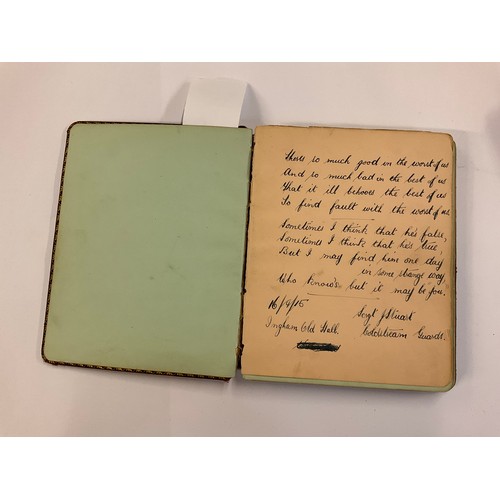 Theres so much good in the worst of us
And so much bad in the best of us
That it ill behoves the best of us
To find fault with the worst of us.
Sometimes I think that he's false,
Sometimes I think that he's true
But I may find him one day
in some strange way
Who knows but it may be you.
16/9/15 Sergt J Stuart
Ingham Old Hall. Coldstream Guards.